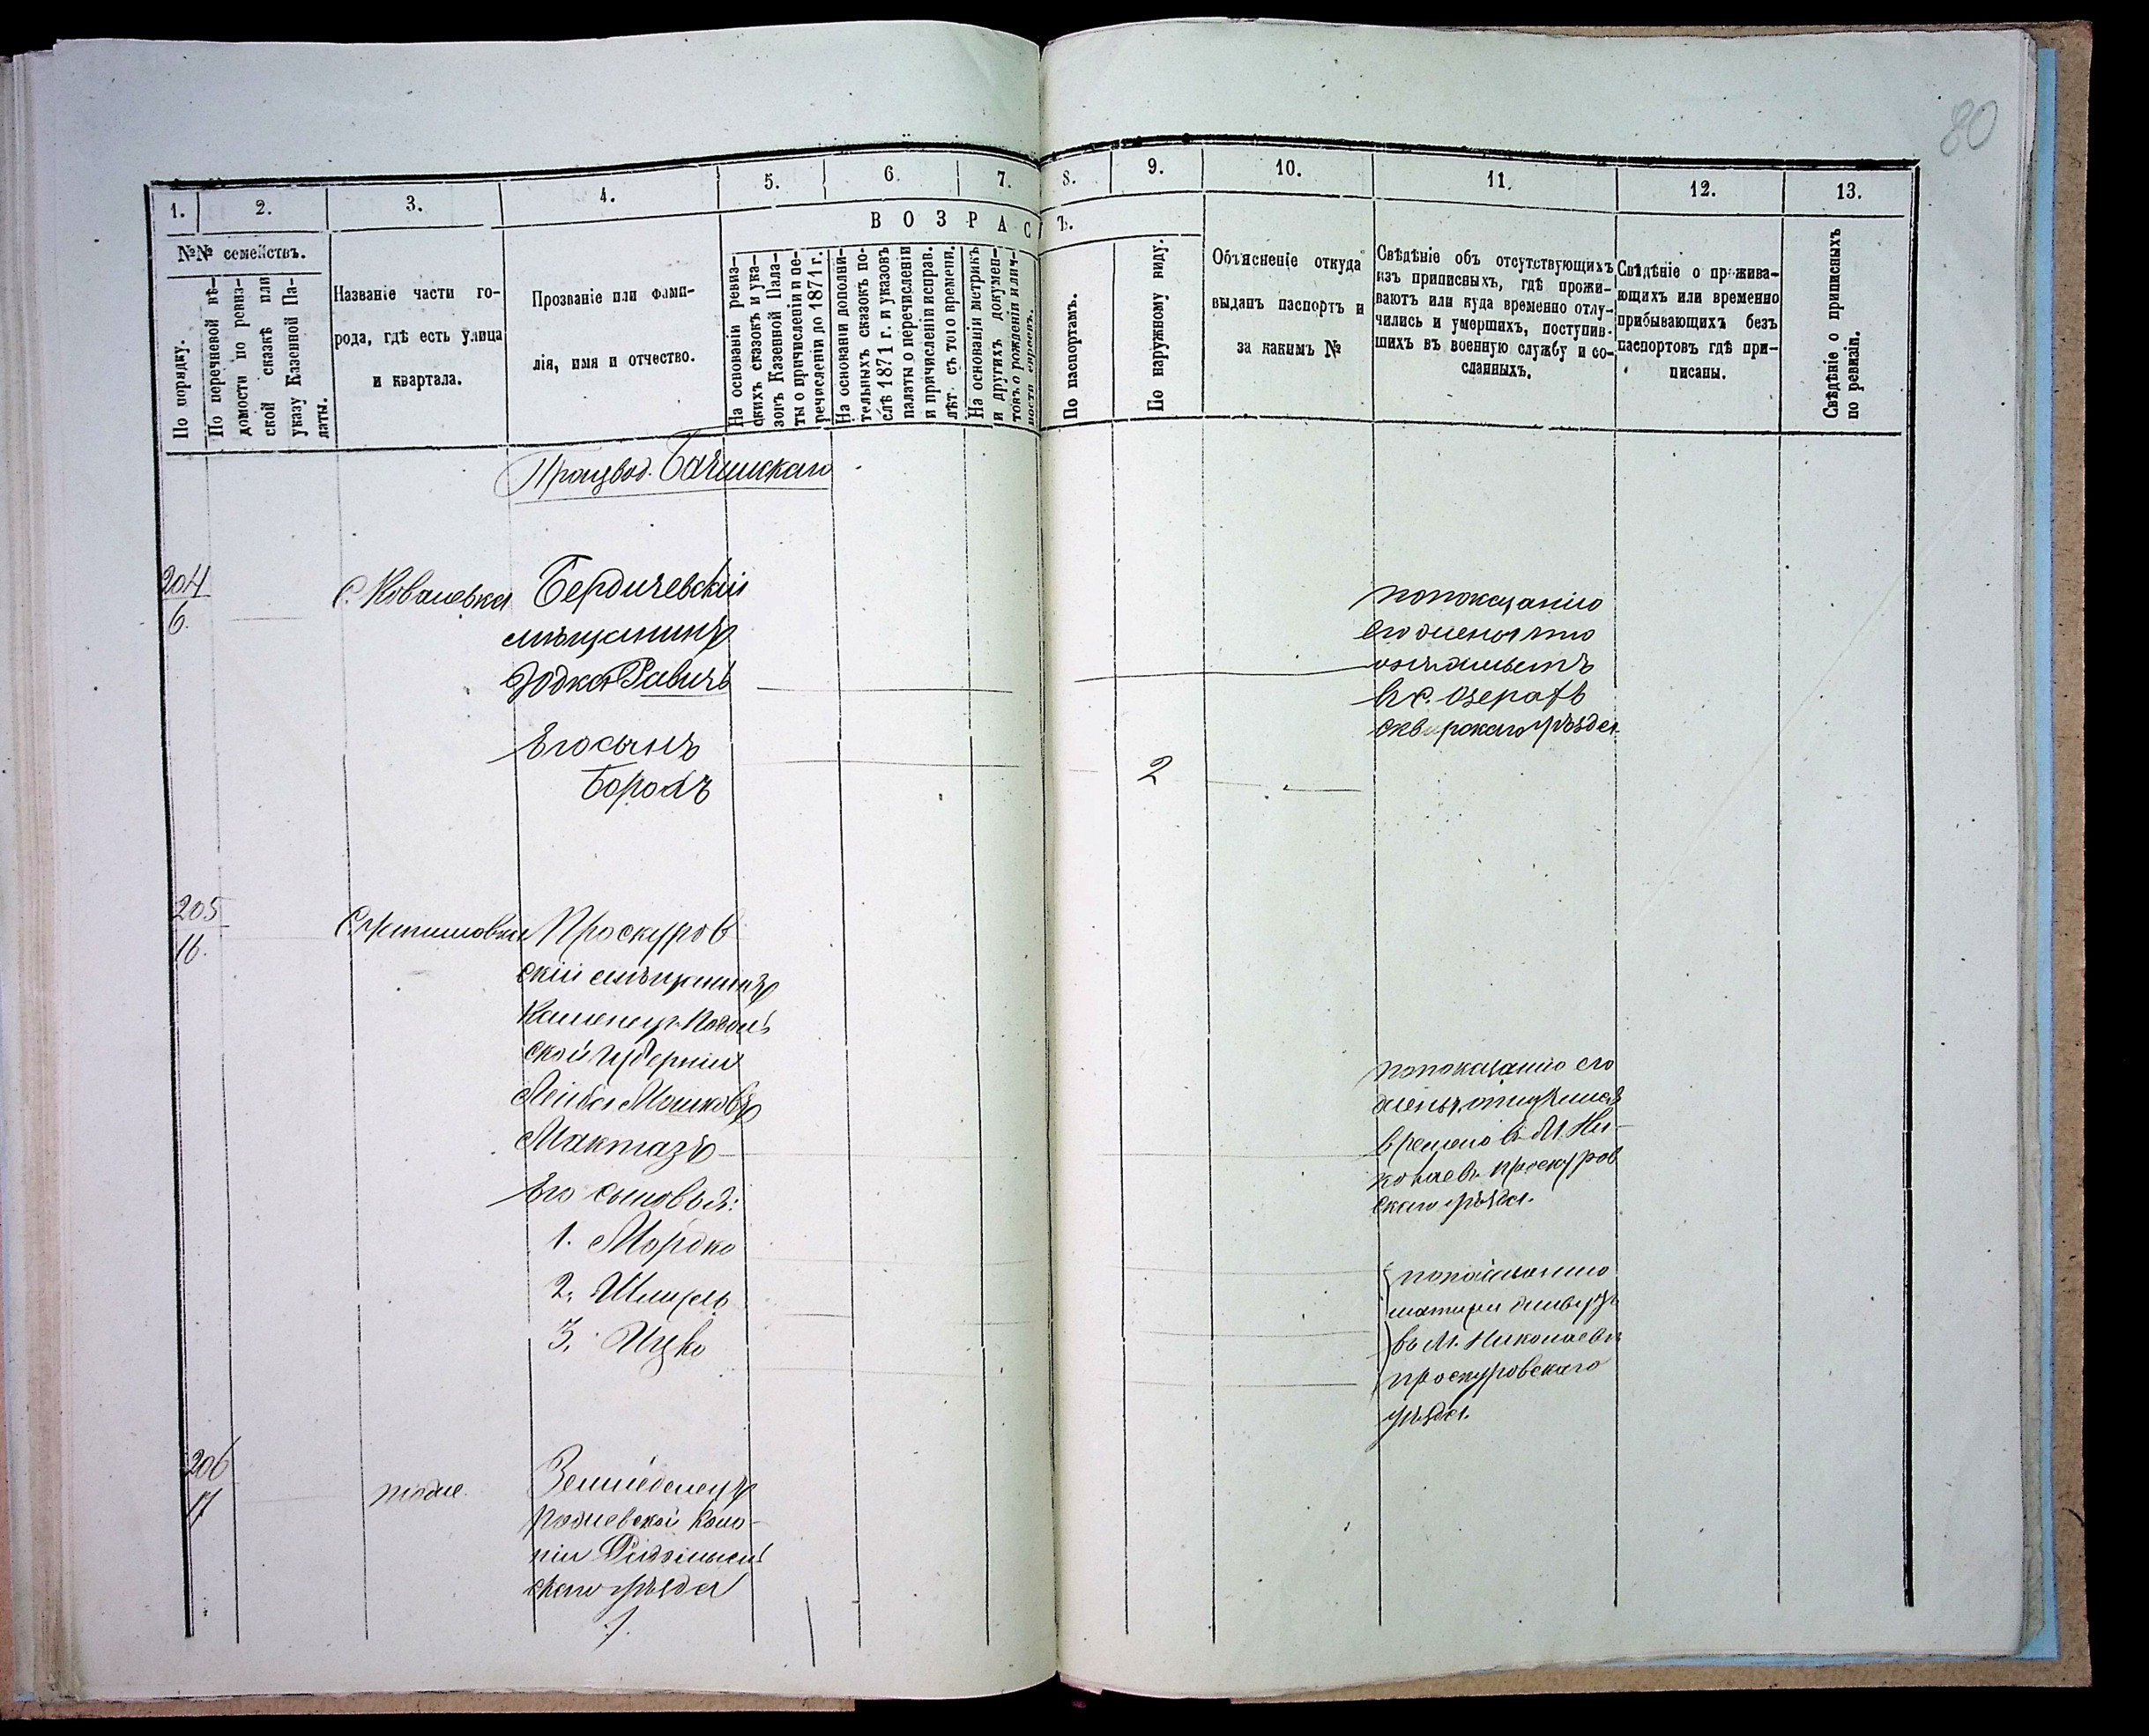 80
1.
2.
3.
4.
5.
6.
7.
8.
9.
10.
11.
12.
13.
ВОЗРАСТЪ.
№№ семействъ.
По порядку.
По перечневой вѣ-
домости по ревиз-
ской сказкѣ или
указу Казенной Па-
латы.
Названіе части го-
рода, гдѣ есть улица
и квартала.
Прозваніе или фами-
лія, имя и отчество.
На основаніи ревиз-
скихъ сказокъ и ука-
зонъ Казенной Пала-
ты о причисленіи и пе-
речисленіи до 1871 г.
На основаніи дополни-
тельныхъ сказокъ по-
слѣ 1871 г. и указовъ
палаты о перечисленіи
и причисленіи исправ.
лѣт. съ того времени.
На основаніи метрикъ
и другихъ докумен-
товъ о рожденіи и лич-
ности евреевъ.
По паспортамъ.
По наружному виду.
Объясненіе откуда
выданъ паспортъ и
за какимъ №
Свѣдѣніе объ отсутствующихъ
изъ приписныхъ, гдѣ прожи-
ваютъ или куда временно отлу-
чились и умершихъ, поступив-
шихъ въ военную службу и со-
сланныхъ.
Свѣдѣніе о прожива-
ющихъ или временно
прибывающихъ безъ
паспортовъ гдѣ при-
писаны.
Свѣдѣніе о приписныхъ
по ревизіи.
Производ. Бачинскаго
204
6.
С. Ковалевка
Бердичевскій
мѣщанинъ
Іодка Равичъ
Его сынъ
Борохъ
2
по показанію
его жены что
онъ живетъ
в с. Озерахъ
сквирскаго уѣзда
205
16.
Проскуров
скій мѣщанинъ
Каменец-Подоль
ской губерніи
Лейба Мошковъ
Мактазъ
Его сыновья:
1. Мордко
2. Шмуль
3. Ицко
по показанію его
жены отлучился
времено в М. Ни-
колаевъ проскуров
скаго уѣзда.
по показанію
матери живутъ
въ М. Николаевъ
проскуровскаго
уѣзда.
206
17
тоже
Земледелецъ
коло-
ніи
скаго уѣзда